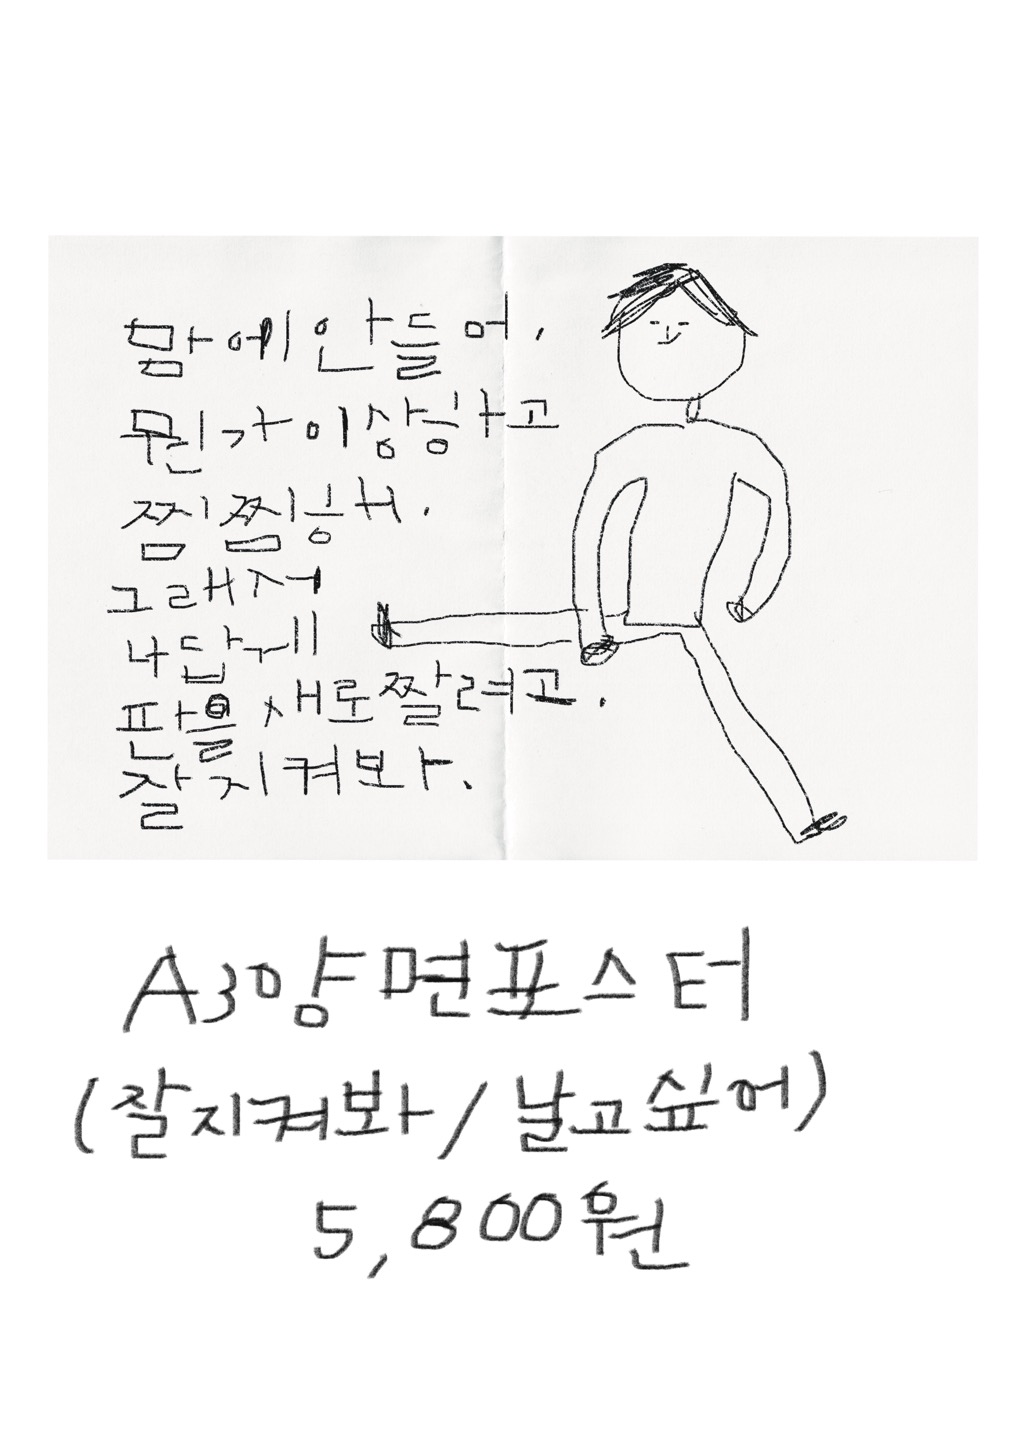 맘에 안들어.
뭔가 이상하고
찜찜해.
그래서
나답게
판을 새로 짤려고.
잘 지켜봐.
A3 양면포스터
(잘지켜봐/날고싶어)
5,800원